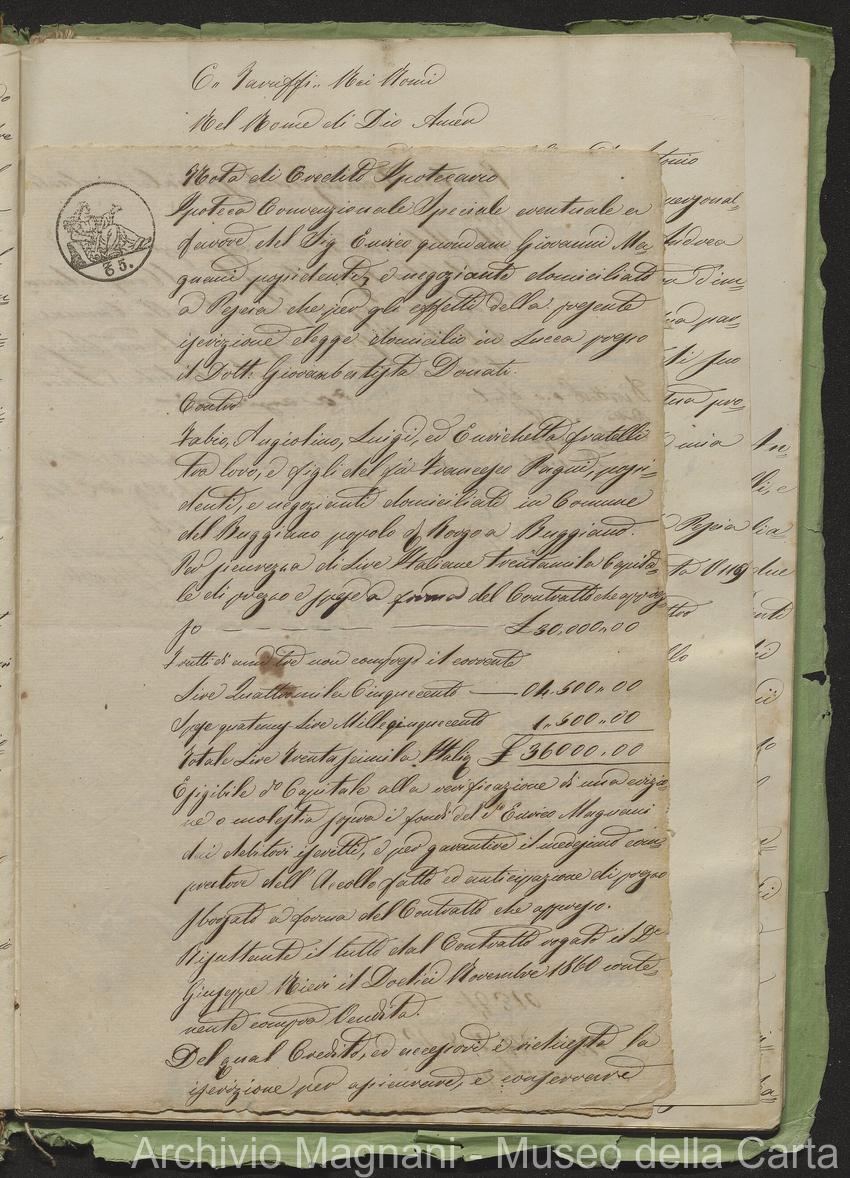 C.. Taruffi.. Nei Nomi
Nel Nome di Dio Amen
Nota di Credito Ipotecario
Ipoteca Convenzionale Speciale eventuale a
favore del Sig Enrico quondam Giovanni Ma-
gnani possidente, e negoziante domiciliato
a Pescia che per gli effetti della presente
iscrizione elegge domicilio in Lucca presso
il Dott: Giovanbattista Donati.
Contro
Fabio, Angiolino, Luigi, ed Enrichetta fratelli
tra loro, e figli del fù Francesco Pagni, possi-
denti, e negozianti domiciliati in Comune
del Buggiano popolo di Borgo a Buggiano.
Per sicurezza di Lire Italiane trentamila Capita-
le di prezzo e spese a forma del Contratto che appres-
so £ 30,000,,00
Frutti di anni tre non compreso il corrente
Lire Quattromila Cinquecento 04.500,,00
Spese Lire Millecinquecento 1,,500,,00
Totale Lire Trentaseimila Italie £ 36000,,00
Esigibile do Capitale alla verificazione di una evizio-
ne o molestia sopra i fondi del Sr Enrico Magnani
dai debitori iscritti, e per garantire il medesimo com-
pratore dell'Accollo fatto ed anticipazione di prezzo
sborsato a forma del Contratto che appresso.
Risultante il tutto dal Contratto rogato il Dr
Giuseppe Nieri il Dodici Novembre 1860 conte-
nente compra Vendita.
Del qual Credito, ed accessori è richiesta la
iscrizione per assicurare, e conservare
35.
Andrea
Pescia
mia
Archivio Magnani - Museo della Carta